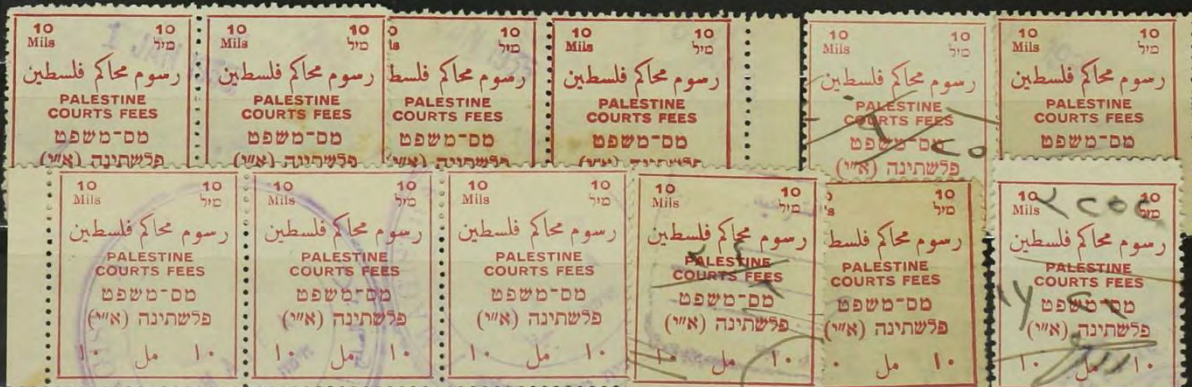 10 10
Mils מיל
رسوم محاكم فلسطين
PALESTINE
COURTS FEES
מס־משפט
פלשתינה (א״י)
1 JAN
10 10
Mils מיל
رسوم محاكم فلسطين
PALESTINE
COURTS FEES
מס־משפט
פלשתינה (א״י)
10
מיל
رسوم محاكم فلسط
PALESTINE
COURTS FEES
מס־משפט
פלשתינה (א״י)
10 10
Mils מיל
رسوم محاكم فلسطين
PALESTINE
COURTS FEES
מס־משפט
פלשתינה (א״י)
10 10
Mils מיל
رسوم محاكم فلسطين
PALESTINE
COURTS FEES
מס־משפט
פלשתינה (א״י)
10 10
Mils מיל
رسوم محاكم فلسطين
PALESTINE
COURTS FEES
מס־משפט
פלשתינה (א״י)
10 10
Mils מיל
رسوم محاكم فلسطين
PALESTINE
COURTS FEES
מס־משפט
פלשתינה (א״י)
١٠ مل ١٠
10 10
Mils מיל
رسوم محاكم فلسطين
PALESTINE
COURTS FEES
מס־משפט
פלשתינה (א״י)
١٠ مل ١٠
10 10
Mils מיל
رسوم محاكم فلسطين
PALESTINE
COURTS FEES
מס־משפט
פלשתינה (א״י)
١٠ مل ١٠
10 10
Mils מיל
رسوم محاكم فلسطين
PALESTINE
COURTS FEES
מס־משפט
פלשתינה (א״י)
١٠ مل ١٠
10
מיל
رسوم محاكم فلسط
PALESTINE
COURTS FEES
מס־משפט
פלשתינה (א״י)
مل ١٠
10 10
Mils מיל
رسوم محاكم فلسطين
PALESTINE
COURTS FEES
מס־משפט
פלשתינה (א״י)
١٠ مل ١٠